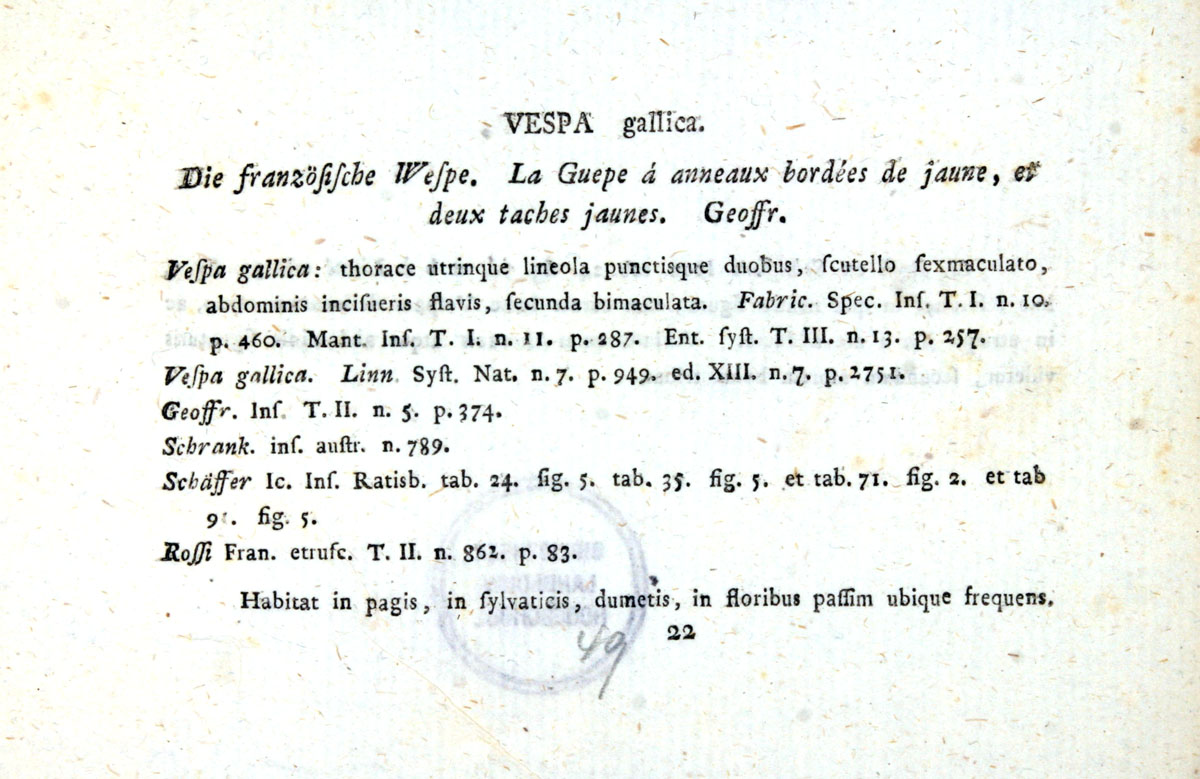 VESPA gallica.
Die franzöſiſche Weſpe. La Guepe á anneaux bordées de jaune, et
deux taches jaunes. Geoffr.
Veſpa gallica: thorace utrinque lineola punctisque duobus, ſcutello ſexmaculato,
abdominis inciſueris flavis, ſecunda bimaculata. Fabric. Spec. Inſ. T. I. n. 10.
p. 460. Mant. Inſ. T. I. n. 11. p. 287. Ent. ſyſt. T. III. n. 13. p. 257.
Veſpa gallica. Linn Syſt. Nat. n. 7. p. 949. ed. XIII. n. 7. p. 2751.
Geoffr. Inſ. T. II. n. 5. p. 374.
Schrank. inſ. auſtr. n. 789.
Schäffer Ic. Inſ. Ratisb. tab. 24. fig. 5. tab. 35. fig. 5. et tab. 71. fig. 2. et tab
fig. 5.
Roſſi Fran. etruſc. T. II. n. 862. p. 83.
Habitat in pagis, in ſylvaticis, dumetis, in floribus paſſim ubique frequens.
22
49